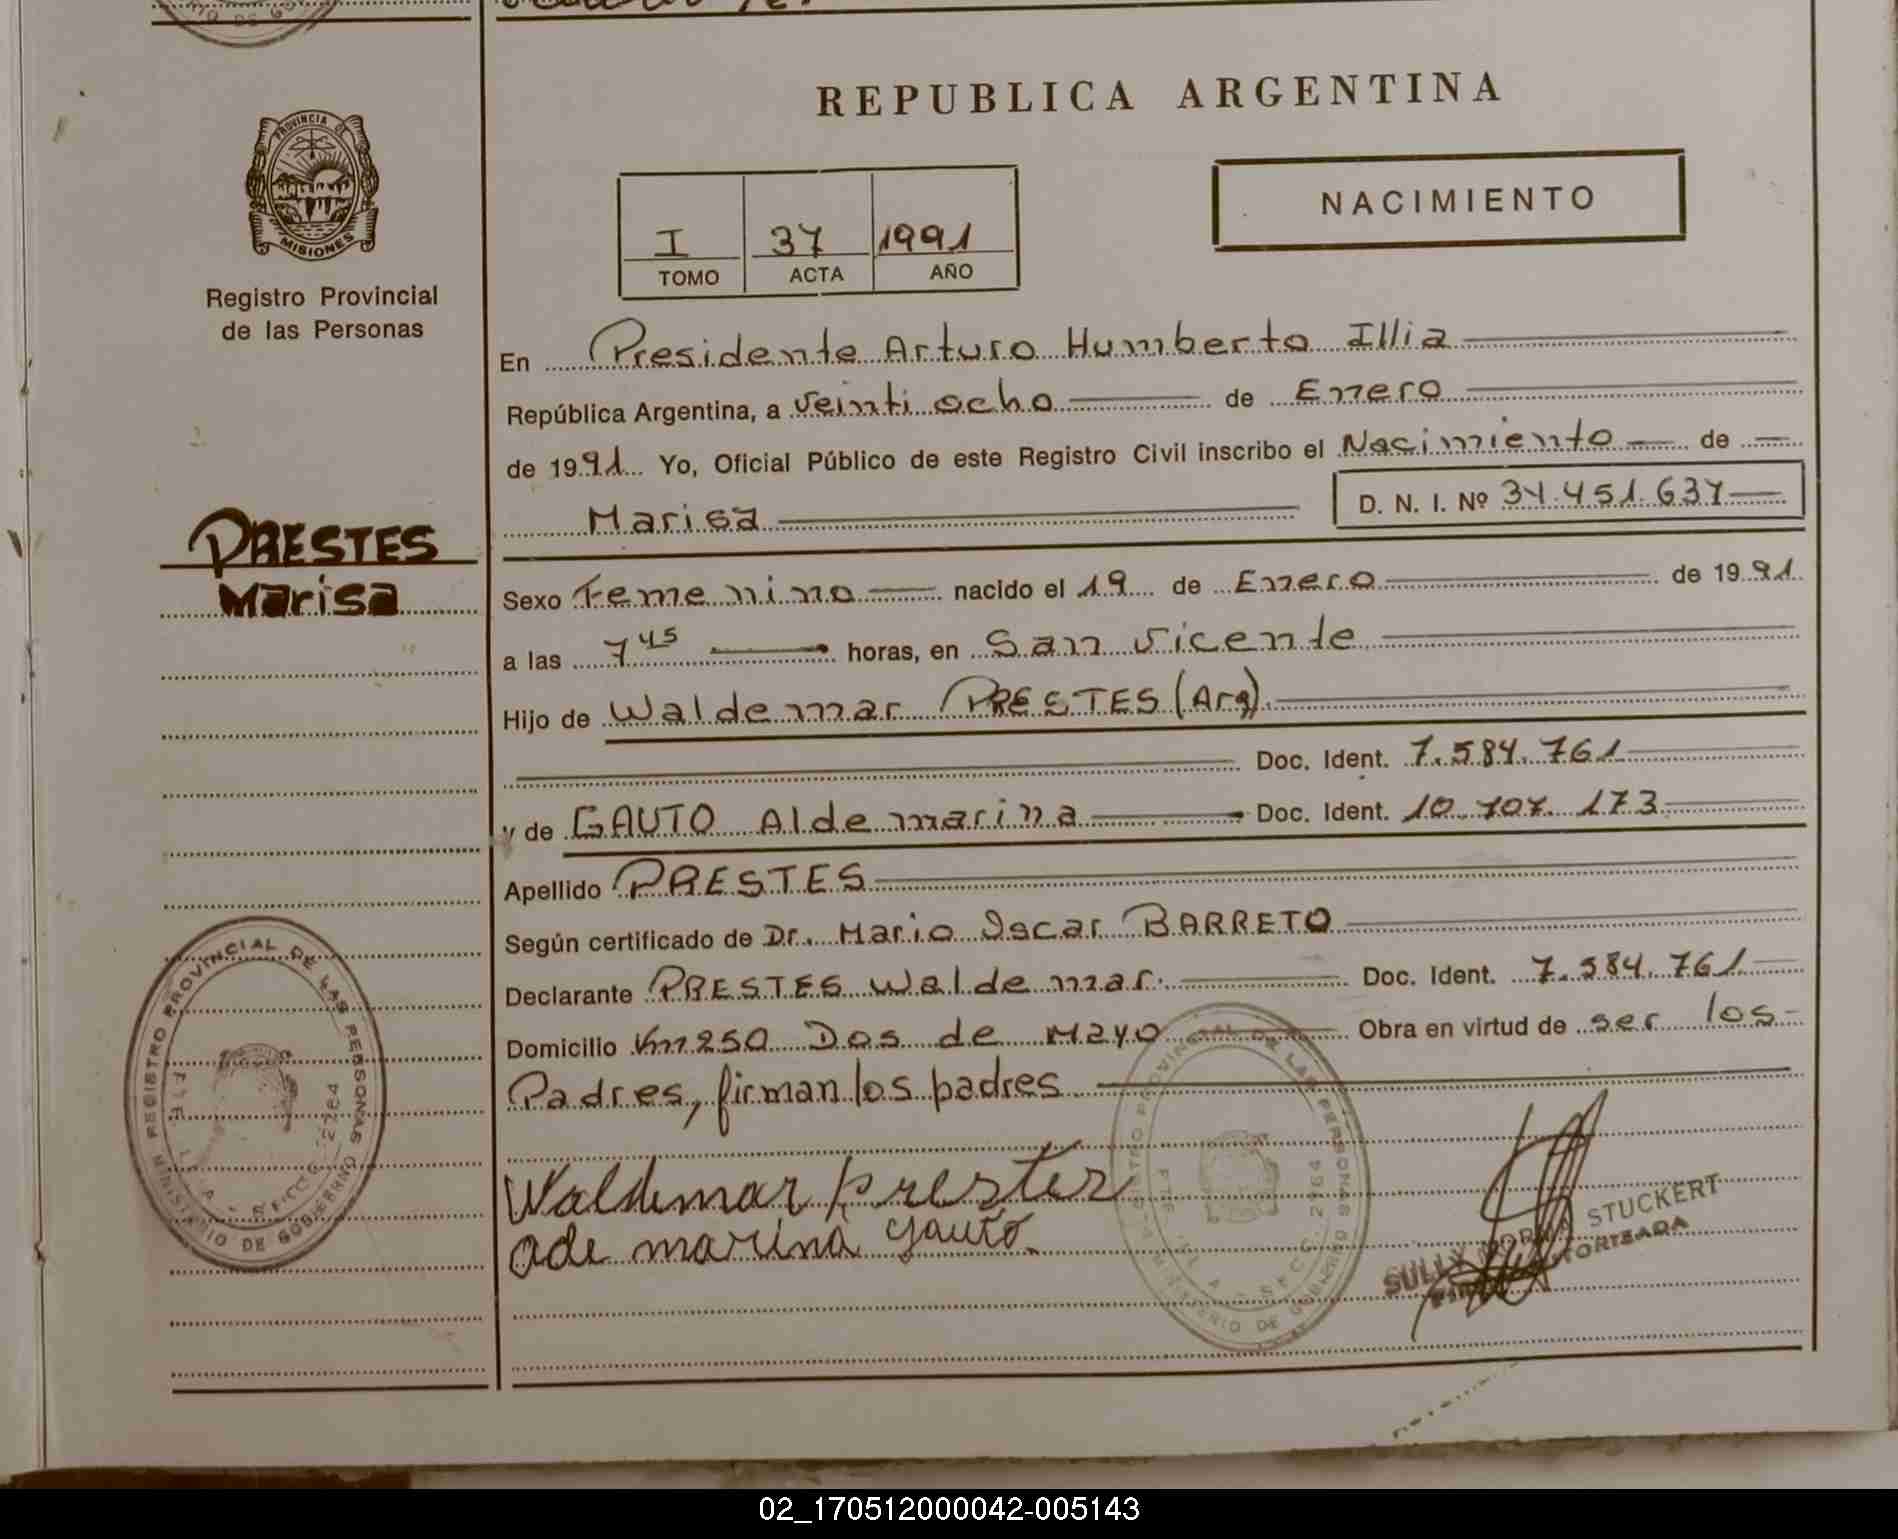 REPUBLICA ARGENTINA
PROVINCIA DE
MISIONES
Registro Provincial
de las Personas
I 37 1991
TOMO ACTA AÑO
NACIMIENTO
En Presidente Arturo Humberto Illia
República Argentina, a veinti ocho de Enero
de 1991 Yo, Oficial Público de este Registro Civil inscribo el Nacimiento de
Marisa D. N. I. Nº
PRESTES
Marisa
Sexo Femenino nacido el 19 de Enero de 1991
a las 7 45 horas, en San Vicente
Hijo de Waldemar PRESTES (Arg).
Doc. Ident. 7.584.761
y de GAUTO Aldemarina Doc. Ident. 10.707.173
Apellido PRESTES
Según certificado de Dr. Mario Oscar BARRETO
Declarante PRESTES Waldemar. Doc. Ident. 7.584.761
Domicilio Km 250 Dos de Mayo Obra en virtud de ser los
Padres, firman los padres
Waldemar prestes
ade marina gauto.
REGISTRO PROVINCIAL DE LAS PERSONAS
MINISTERIO DE GOBIERNO
SECC. 2264
SULLY NORMA STUCKERT
AUTORIZADA
02_170512000042-005143